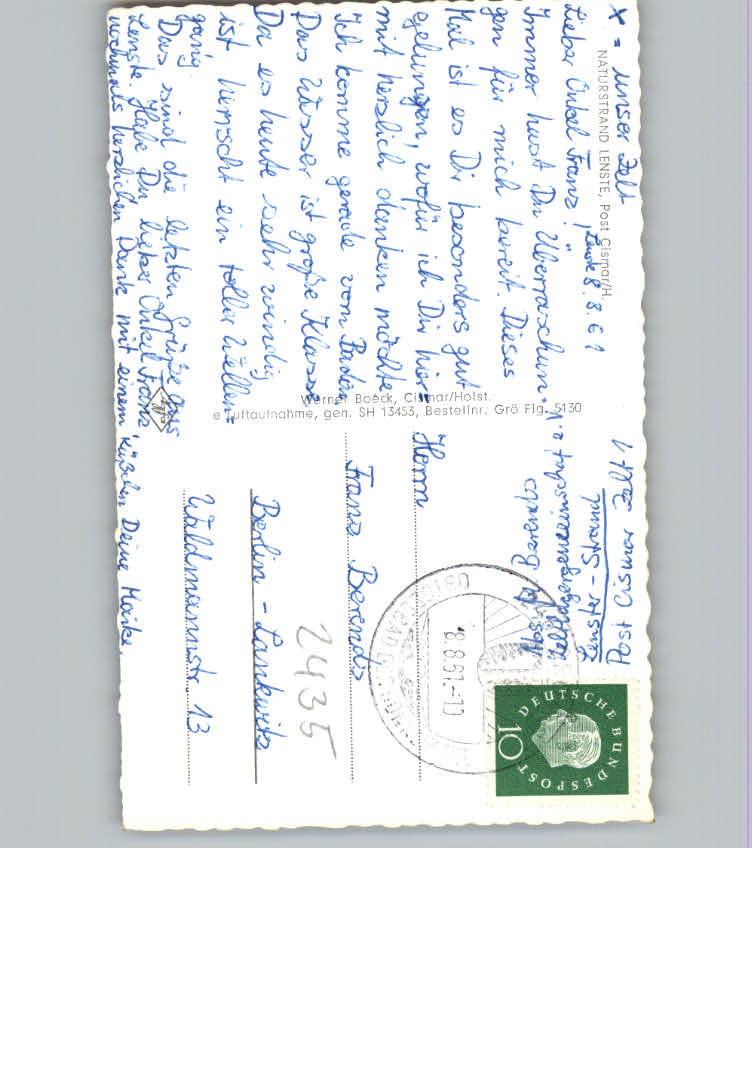 X = unser Zelt
NATURSTRAND LENSTE, Post Cismar/H.
Lenste 8.8.61
Lieber Onkel Franz!
Immer hast Du Überraschun-
gen für mich bereit. Dieses
Mal ist es Dir besonders gut
gelungen, wofür ich Dir hier-
mit herzlich danken möchte
Ich komme gerade vom Baden
Das Wasser ist große Klasse
Da es heute sehr windig
ist herrscht ein toller Wellen=
gang.
Das sind die letzten Grüße aus
Lenste. Habe Du lieber Onkel Franz
nochmals herzlichen Dank mit einem Küßchen Deine Heike.
Werner Boeck, Cismar/Holst.
Luftaufnahme, gen. SH 13453, Bestellnr. Grö Flg. 5130
Abs. H. Berends
Lenster-Strand
Post Cismar
DEUTSCHE BUNDESPOST
10
8.8.61.-10
Herrn
Franz Berends
Berlin - Lankwitz
Waldmannstr. 13
2435